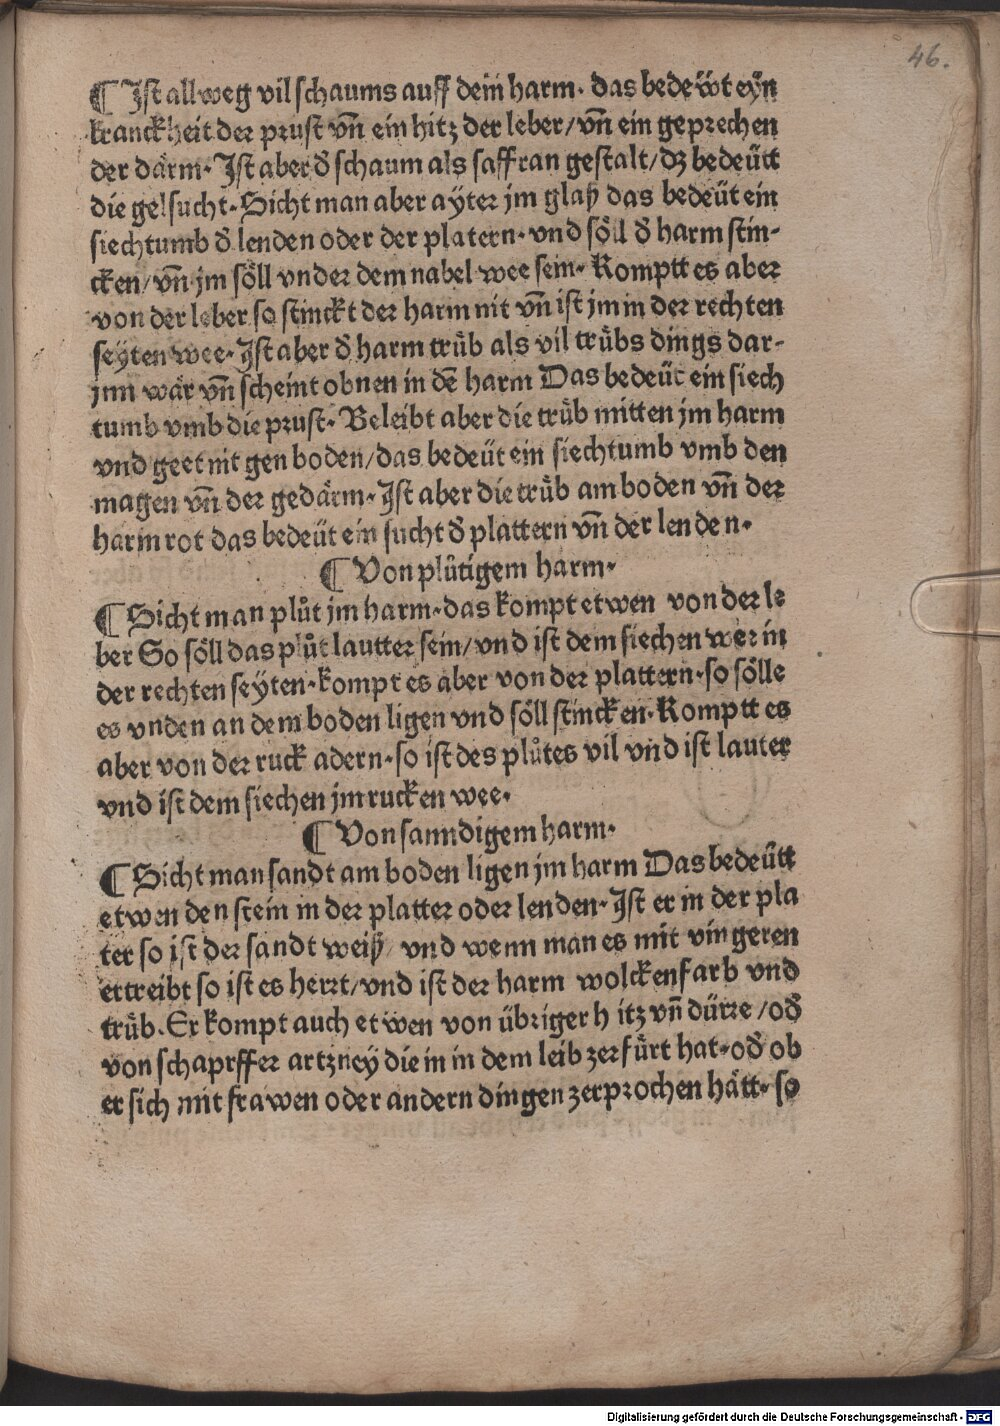 46.
¶ Ist allweg vil schaums auff dem harm. das bedeẅt eyn
kranckheit der prust vn̄ ein hitz der leber/vn̄ ein geprechen
der därm. Ist aber d̕ schaum als saffran gestalt/dz bedeütt
die gelsucht. Sicht man aber ayter jm glaß das bedeüt ein
siechtumb d̕ lenden oder der platern. vnd söll d̕ harm stin-
cken/vn̄ jm söll vnder dem nabel wee sein. Komptt es aber
von der leber so stinckt der harm nit vn̄ ist jm in der rechten
seyten wee. Ist aber d̕ harm trüb als vil trübs dings dar-
jnn wär vn̄ scheint obnen in dē harm Das bedeüt ein siech
tumb vmb die prust. Beleibt aber die trüb mitten jm harm
vnd geet nit gen boden/das bedeüt ein siechtumb vmb den
magen vn̄ der gedärm. Ist aber die trüb am boden vn̄ der
harm rot das bedeüt ein sucht d̕ plattern vn̄ der lenden.
¶ Von plůtigem harm.
¶ Sicht man plůt jm harm. das kompt etwen von der le
ber So söll das plůt lautter sein/vnd ist dem siechen wer in
der rechten seyten. kompt es aber von der plattern. so sölle
es vnden an dem boden ligen vnd söll stincken. Komptt es
aber von der ruck adern. so ist des plůtes vil vnd ist lauter
vnd ist dem siechen jm rucken wee.
¶ Von sanndigem harm.
¶ Sicht man sandt am boden ligen jm harm Das bedeütt
etwen den stein in der platter oder lenden. Ist er in der pla
ter so ist der sandt weiß/ vnd wenn man es mit vingeren
ertreibt so ist es herrt/vnd ist der harm wolckenfarb vnd
trüb. Er kompt auch etwen von übriger hitz vn̄ dürre/od̕
von schaprffer artzney die in in dem leib zerfürt hat. od̕ ob
er sich mit frawen oder andern dingen zerprochen hätt. so
Digitalisierung gefördert durch die Deutsche Forschungsgemeinschaft - DFG